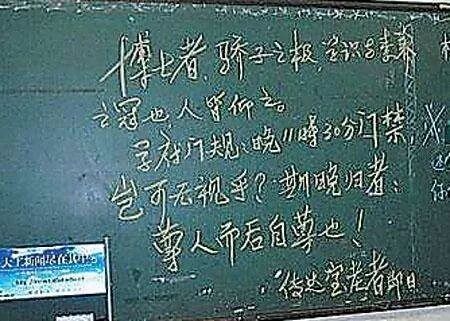 博士者,骄子之极,学识
之冠也人皆仰之。
学府门规:晚11时30分门禁,
岂可无视乎?期晚归者:
尊人而后自尊也!
传达室老者即日
天下新闻尽在其中